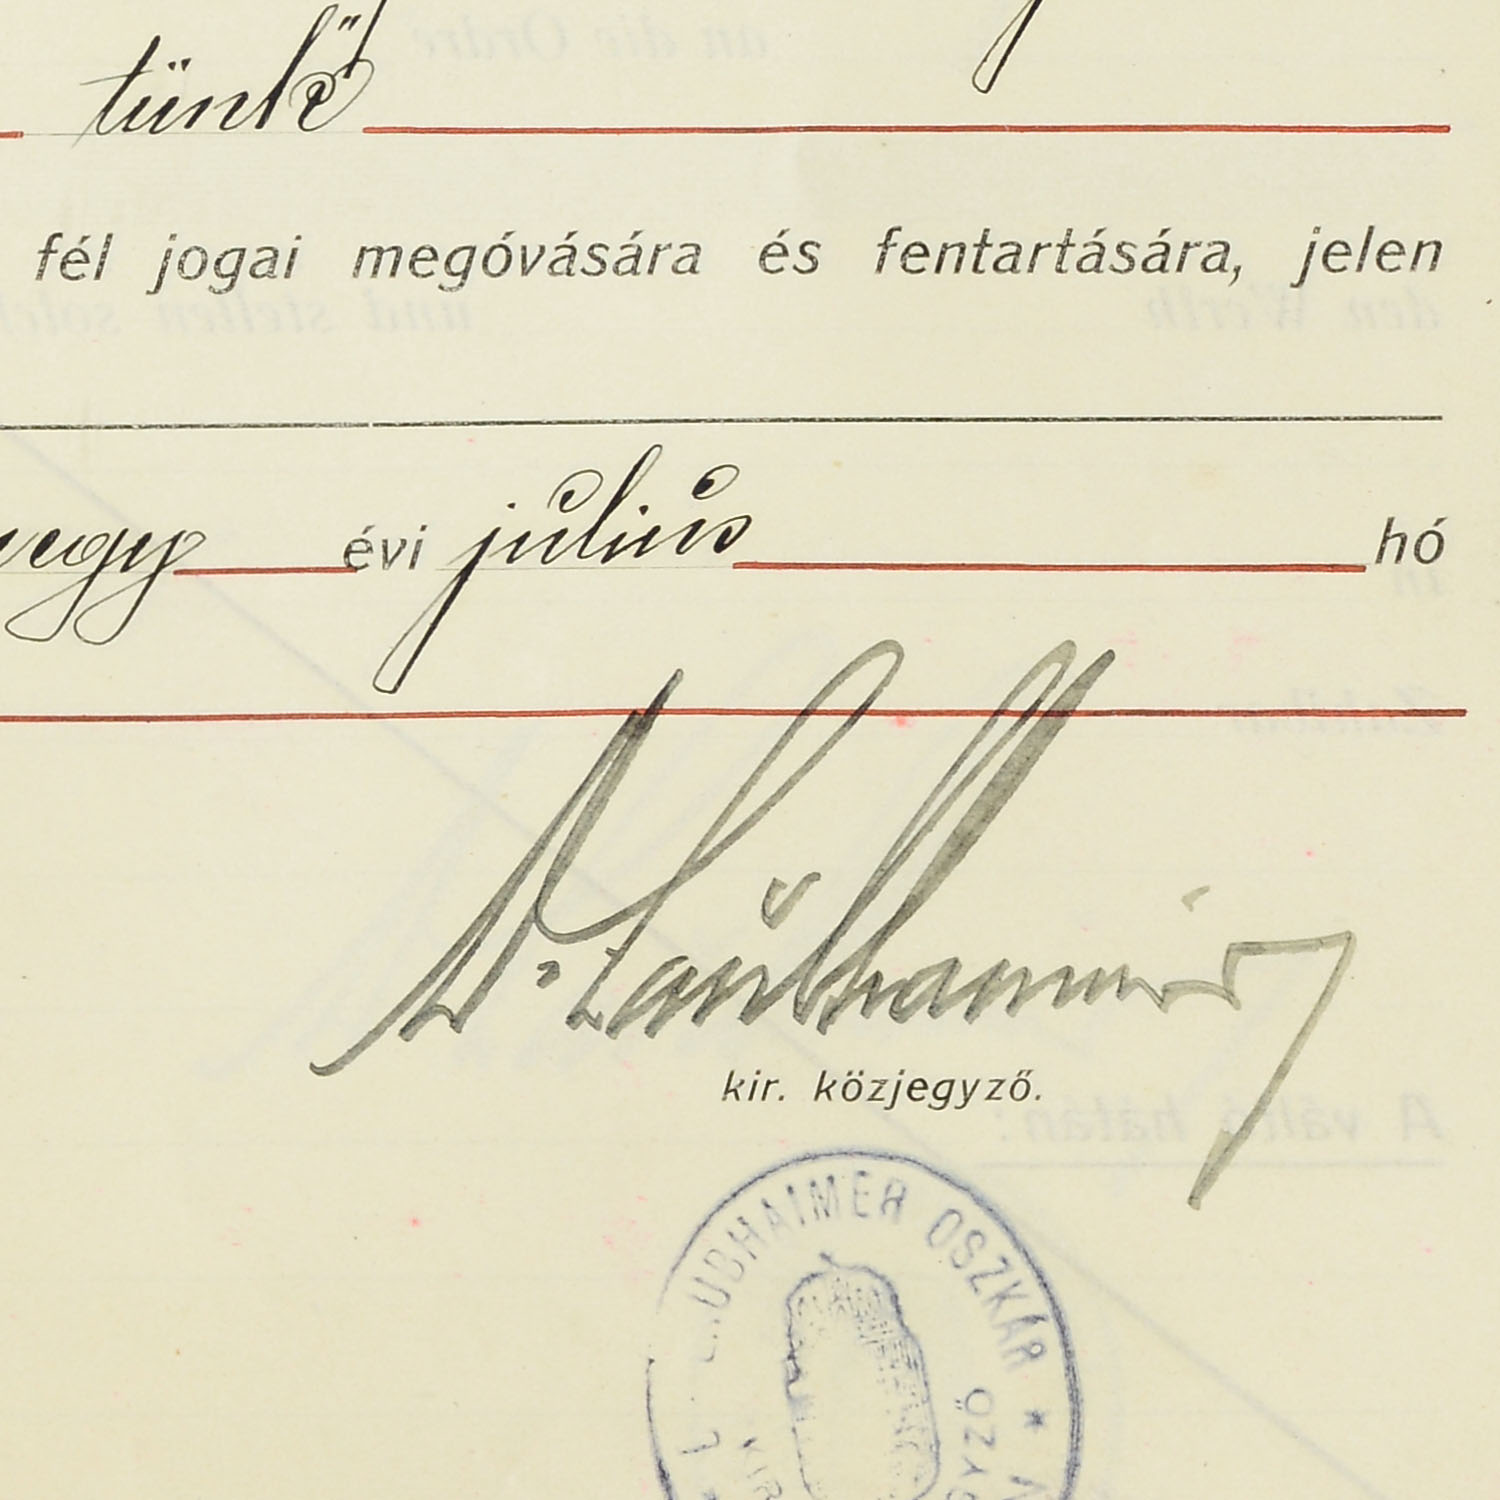 tünk"
fél jogai megóvására és fentartására, jelen
vegy évi július hó
Dr. Laubhaimer
kir. közjegyző.
UBHAIMER OSZKÁR *
KIR